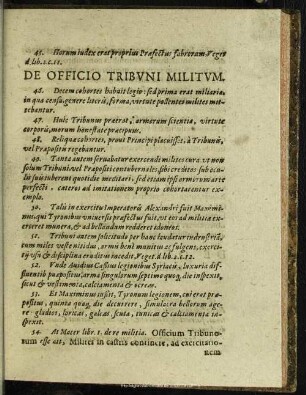 45. Horum iudex erat proprius Præfectus fabrorum Veget
d. lib. 2. c. 11.
DE OFFICIO TRIBVNI MILITVM.
46. Decem cohortes habuit legio: sed prima erat miliaria,
in qua censu, genere literis, forma, virtute pollentes milites mit-
tebantur.
47. Huic Tribunus præerat, armorum scientia, virtute
corporũ, morum honestate præcipuus.
48. Reliquæ cohortes, prout Principi placuisset, à Tribunis,
vel Præpositis regebantur.
49. Tanta autem servabatur exercendi milites cura, ut non
solum Tribuni vel Præpositi contubernales sibi creditos sub ocu-
lis suis iuberent quotidie meditari: sed etiam ipsi armorum arte
perfecti, cæteros ad imitationem proprio cohortarentur ex-
emplo.
50. Talis in exercitu Imperatoris Alexandri fuit Maximi-
nus, qui Tyronibus universis præfectus fuit, ut eos ad militiã ex-
erceret munera, & ad bellandum redderet idoneos.
51. Tribuni autem solicitudo per hanc laudatur industriã,
cum miles veste nitidus, armis benè munitus ac fulgens, exerci-
tij usu & disciplina eruditus incedit. Veget. d. lib. 2. c. 12.
52. Unde Avidius Cassius legionibus Syriacis, luxuria dif-
fluentib. præpositus, arma singulorum septimo quoq. die inspexit,
sicut & vestimenta, calceamenta & ocreas.
53. Et Maximinus iussit, Tyronum legionem, cui erat præ-
positus, quinta quoq. die decurrere, simulacra bellorum age-
re: gladios, loricas, galeas, scuta, tunicas & calceamenta in-
spexit.
54. At Macer libr. 1. de re militia. Officium Tribuno-
rum esse ait, Milites in castris continere, ad exercitatio-
nem